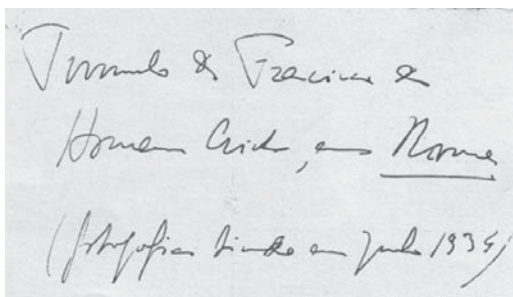 Tumulo de Francisco de
Homem Cristo, em Roma
(fotografia tirada em 1934)